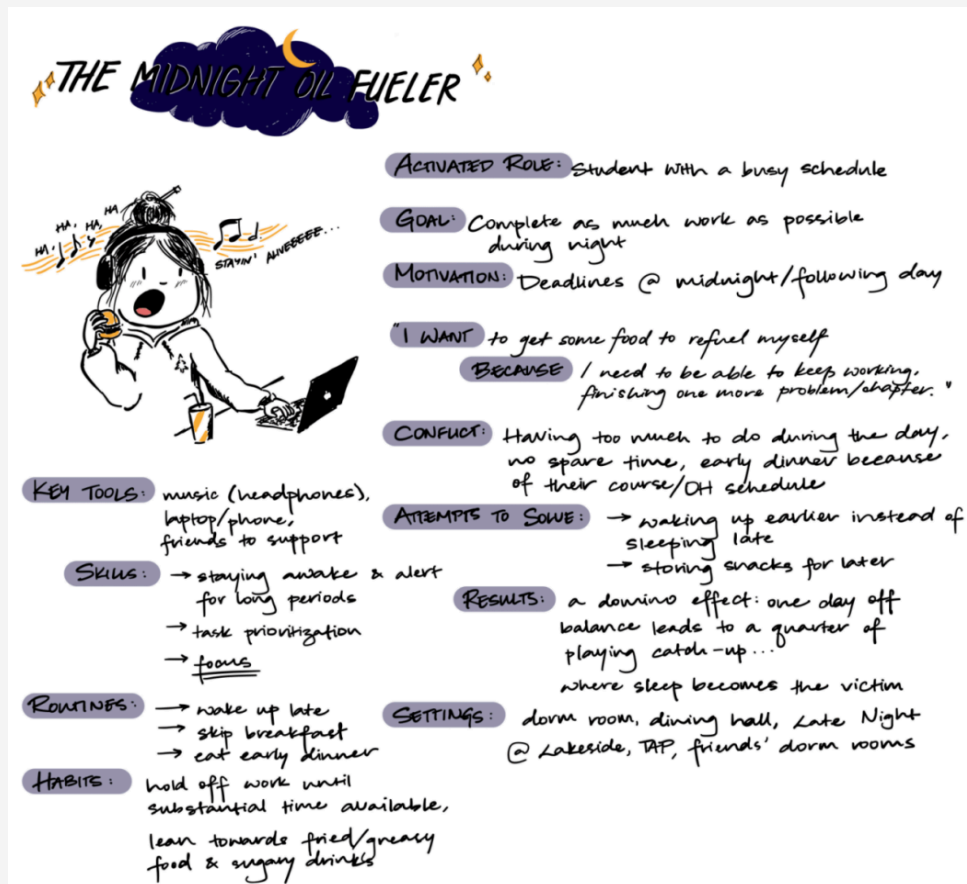 THE MIDNIGHT OIL FUELER
HA, HA, HA, HA
STAYIN' ALIVEEEEE...
ACTIVATED ROLE: Student with a busy schedule
GOAL: Complete as much work as possible
during night
MOTIVATION: Deadlines @ midnight/following day
"I WANT to get some food to refuel myself
BECAUSE I need to be able to keep working,
finishing one more problem/chapter."
CONFLICT: Having too much to do during the day,
no spare time, early dinner because
of their course/OH schedule
ATTEMPTS TO SOLVE: → waking up earlier instead of
sleeping late
→ storing snacks for later
RESULTS: a domino effect: one day off
balance leads to a quarter of
playing catch-up...
where sleep becomes the victim
SETTINGS: dorm room, dining hall, Late Night
@ Lakeside, TAP, friends' dorm rooms
KEY TOOLS: music (headphones),
laptop/phone,
friends to support
SKILLS: → staying awake & alert
for long periods
→ task prioritization
→ focus
ROUTINES: → wake up late
→ skip breakfast
→ eat early dinner
HABITS: hold off work until
substantial time available,
lean towards fried/greasy
food & sugary drinks